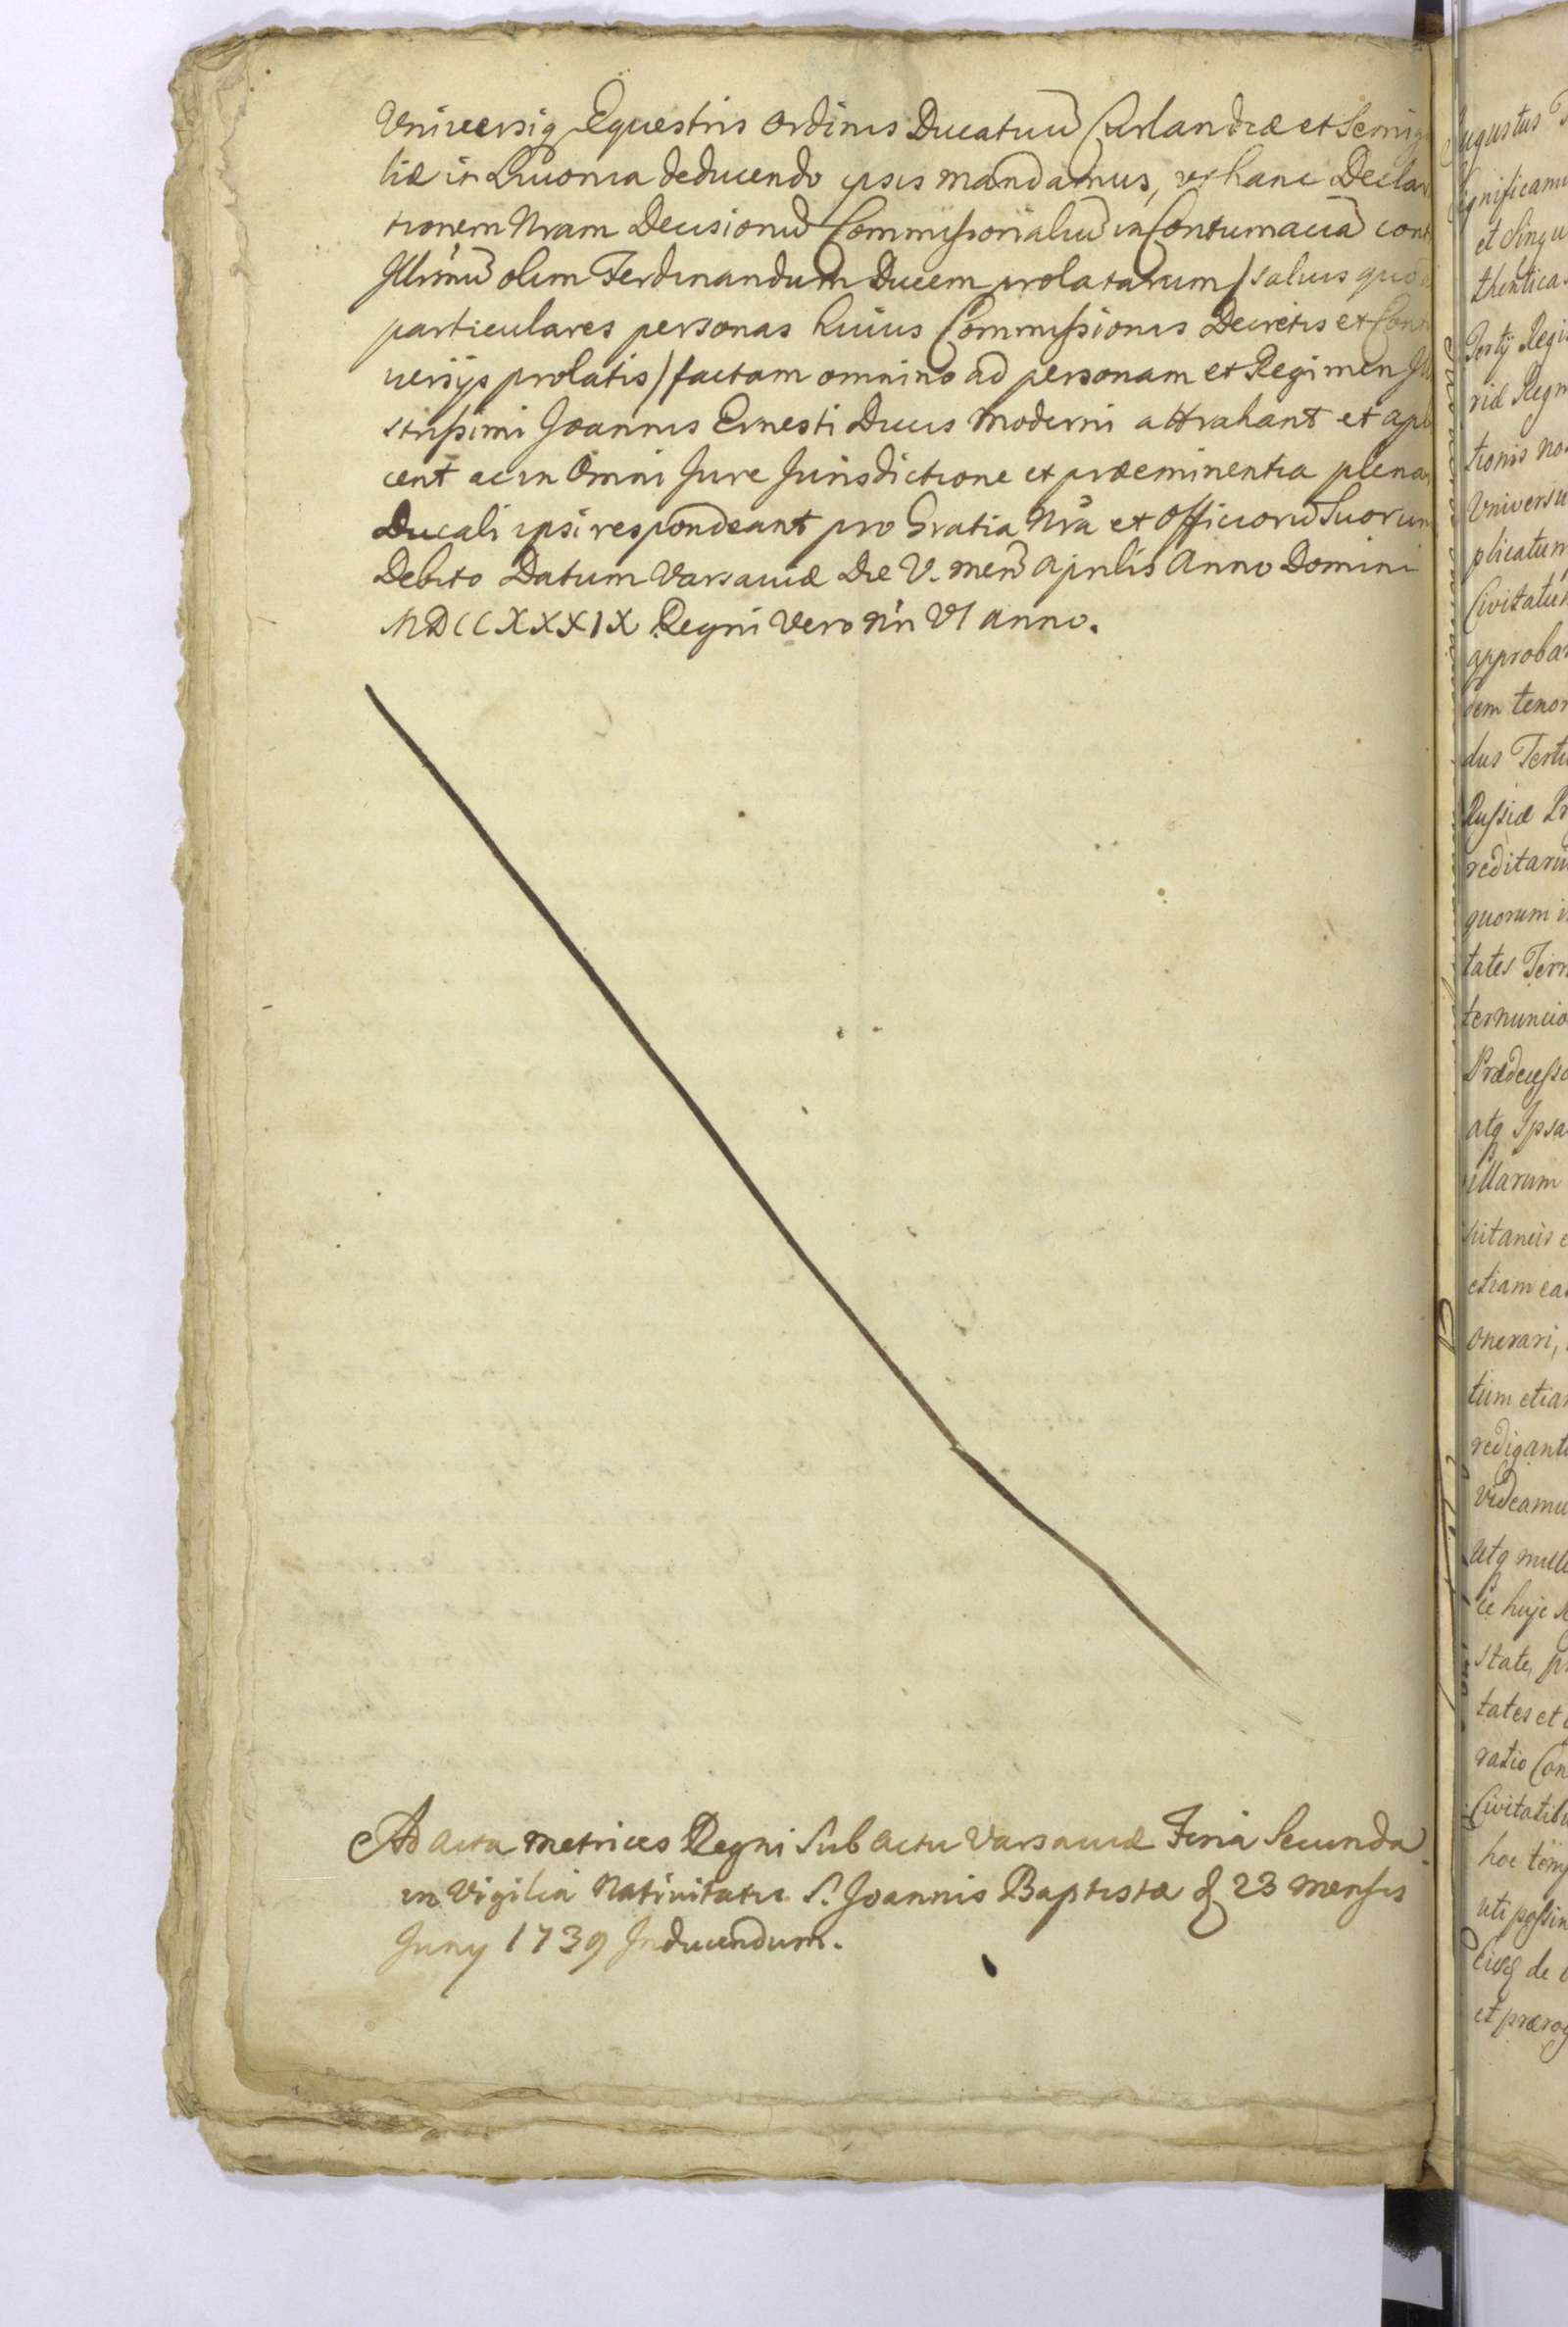 Universiq Equestris Ordinis Ducatuū Curlandiæ et Semig
liæ in Livonia deducendo ipsis mandamus, ut hanc Declar
tionem Nram Decisionū Commissorialiū in Contumaciā cont
Illrimū olim Ferdinandum Ducem prolatarum /salvis quo
particulares personas huius Commissionis Decretis et Cont
versijs prolatis/ factam omnino ad personam et Regimen Ill
strissimi Joannis Ernesti Ducis Moderni attrahant et apli
cent ac in Omni Jure Jurisdictione et præeminentia plena
Ducali ipsi respondeant pro Gratia Nra et Officiorū Suorum
Debito Datum Varsaviæ Die V. men Aprilis Anno Domini
MDCCXXXIX Regni Vero Nri VI anno.
Ad Acta Metrices Regni Sub Actu Varsaviæ Feria Secunda
in Vigilia Nativitatis S. Joannis Baptistæ d 23 Mensis
Juny 1739 Inducendum.
ugustus
ignificamu
et Singu
thenticas
Tertij Regi
riæ Regn
tionis No
Universu
plicatum
Civitatu
approba
dem tenor
dus Terti
Russiæ Pr
reditariu
quorum i
tates Terr
ternuncio
Prædecesso
atq Ipsa
illarum
pitaneis e
etiam ea
onerari,
tum etiam
redigant
Videamu
Utq null
ce huje
state, p
tates et
ratio Con
Civitatib
hoc temp
uti possin
Eiusq de
et prærog